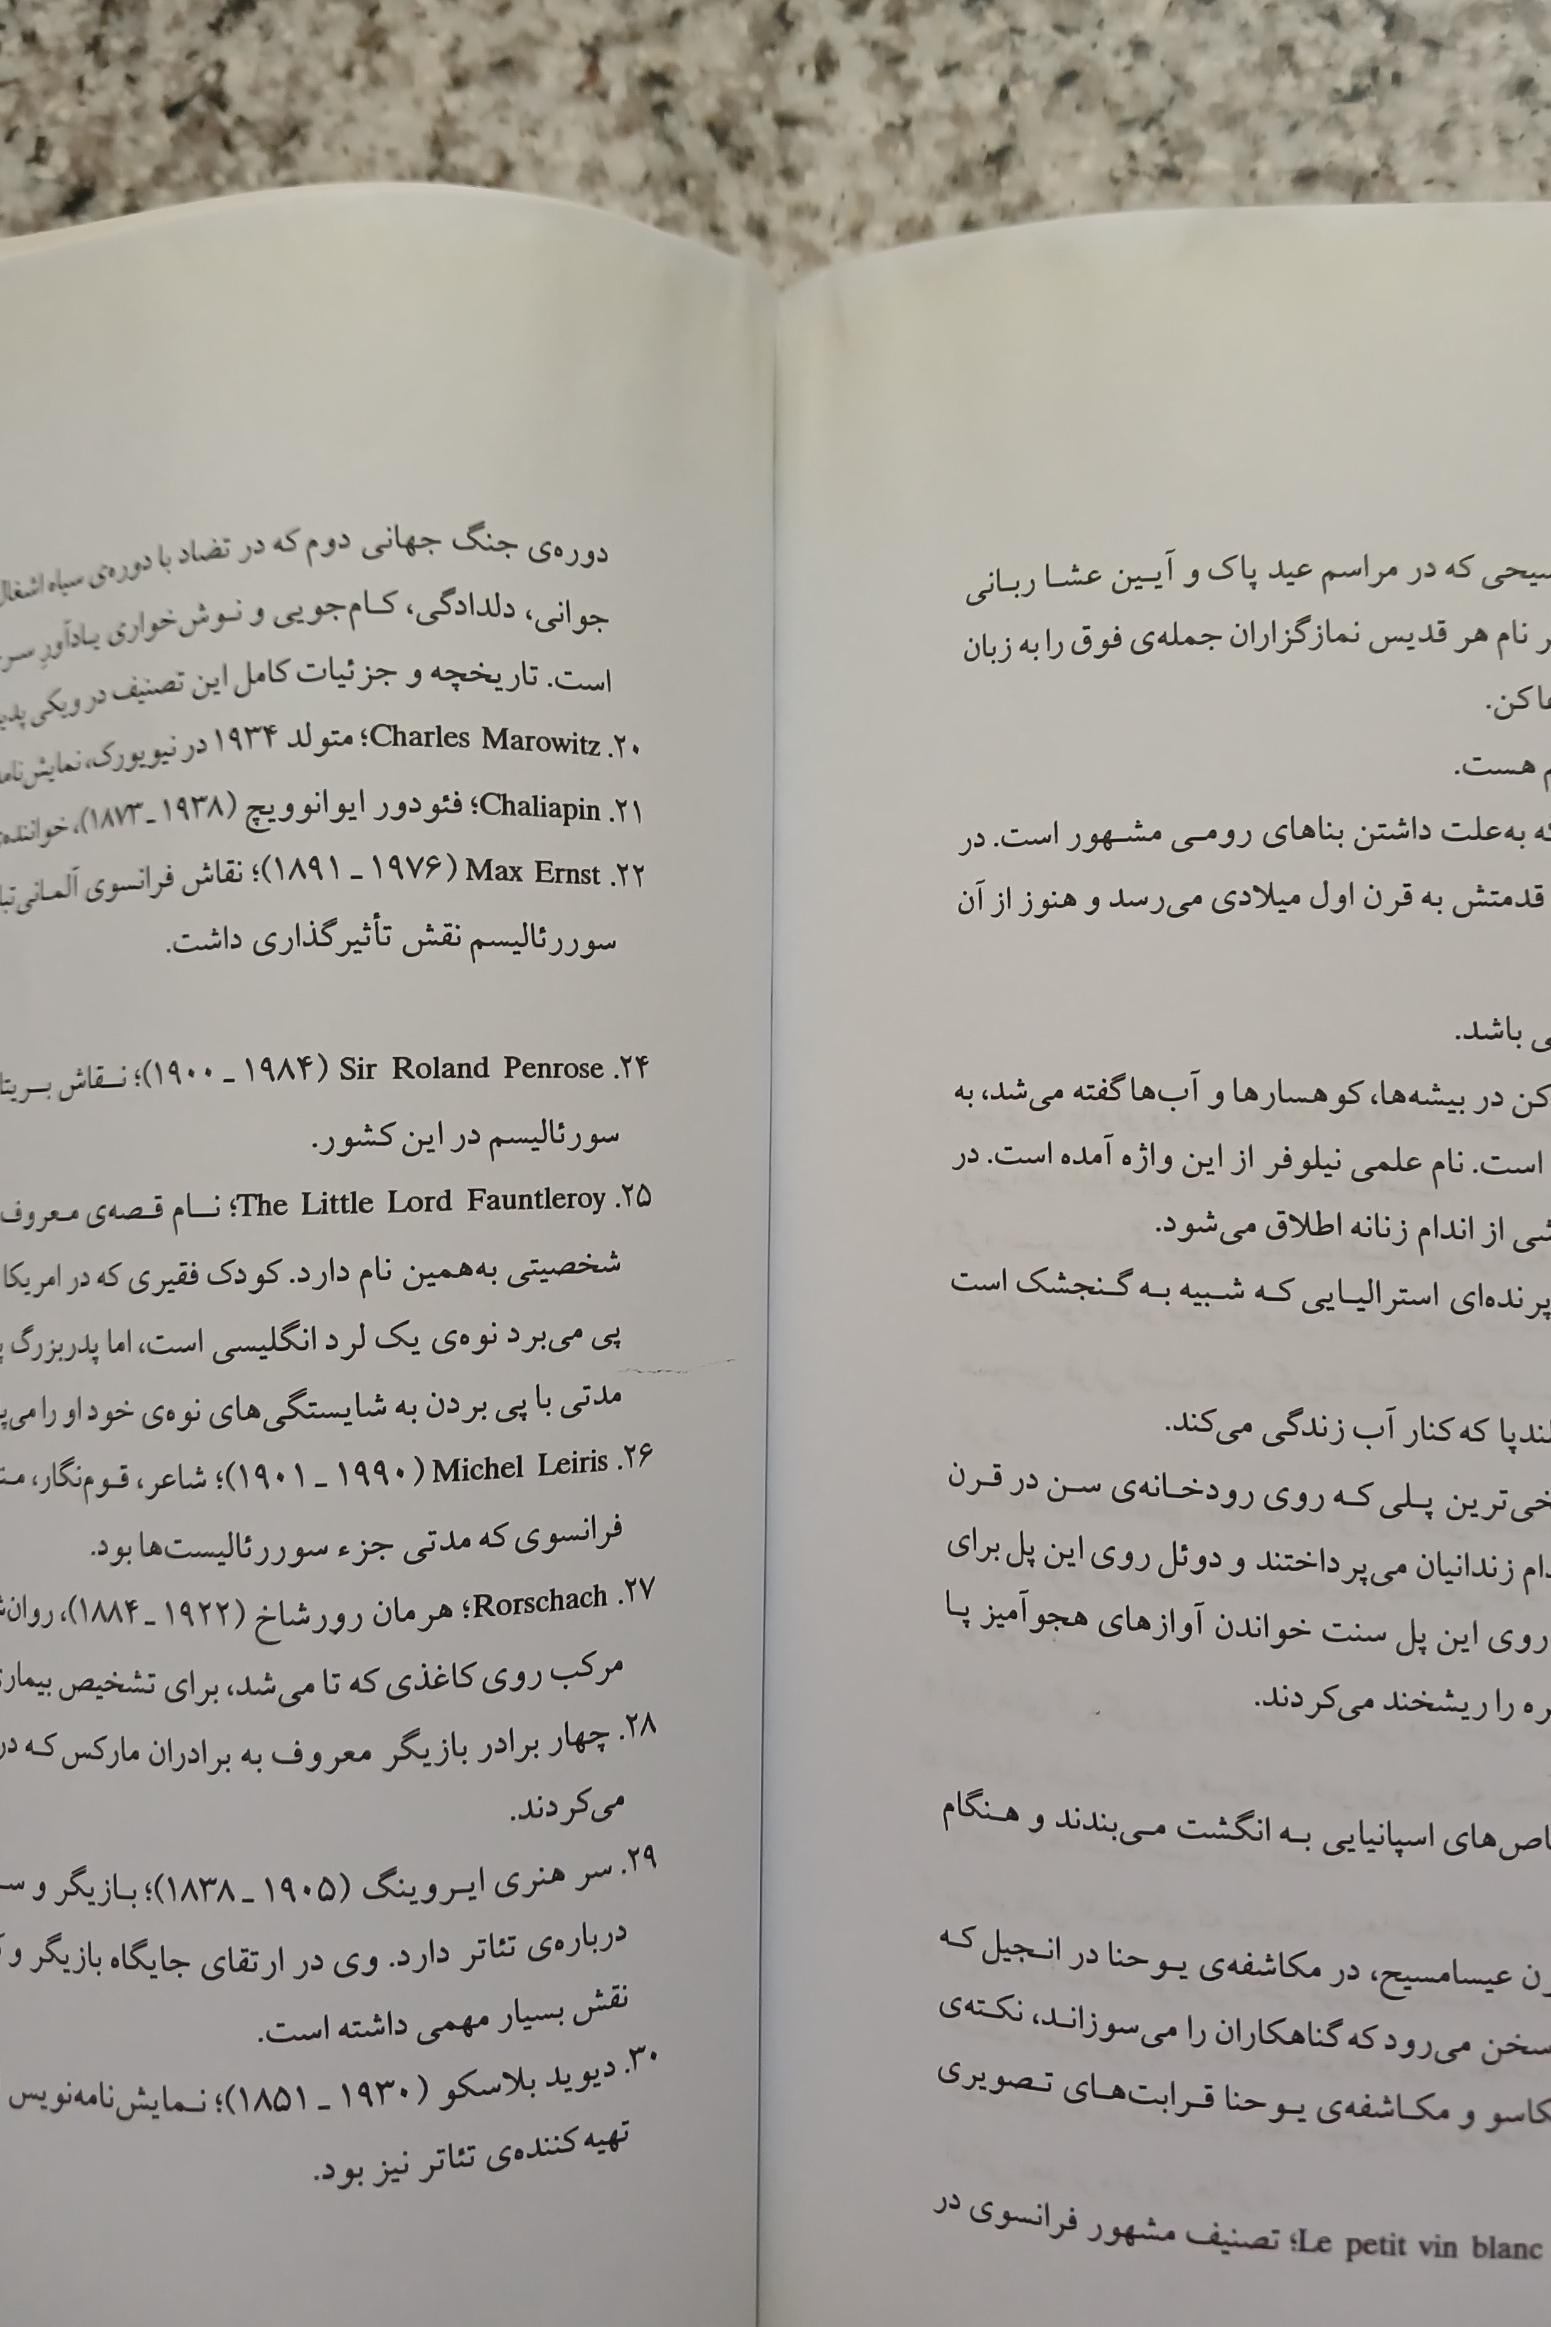 که در مراسم عید پاک و آیین عشا ربانی
نام هر قدیس نمازگزاران جمله‌ی فوق را به زبان
هست.
به‌علت داشتن بناهای رومی مشهور است. در
قدمتش به قرن اول میلادی می‌رسد و هنوز از آن
باشد.
در بیشه‌ها، کوهسارها و آب‌ها گفته می‌شد، به
است. نام علمی نیلوفر از این واژه آمده است. در
از اندام زنانه اطلاق می‌شود.
پرنده‌ای استرالیایی که شبیه به گنجشک است
که کنار آب زندگی می‌کند.
پلی که روی رودخانه‌ی سن در قرن
زندانیان می‌پرداختند و دوئل روی این پل برای
روی این پل سنت خواندن آوازهای هجوآمیز پا
را ریشخند می‌کردند.
اسپانیایی به انگشت می‌بندند و هنگام
عیسا‌مسیح، در مکاشفه‌ی یوحنا در انجیل که
سخن می‌رود که گناهکاران را می‌سوزاند، نکته‌ی
و مکاشفه‌ی یوحنا قرابت‌های تصویری
Le petit vin blanc؛ تصنیف مشهور فرانسوی در
دوره‌ی جنگ جهانی دوم که در تضاد با دوره‌ی سیاه اشغال
جوانی، دلدادگی، کام‌جویی و نوش‌خواری یادآورِ
است. تاریخچه و جزئیات کامل این تصنیف در ویکی
۲۰. Charles Marowitz؛ متولد ۱۹۳۴ در نیویورک،
۲۱. Chaliapin؛ فئودور ایوانوویچ (۱۹۳۸ ـ ۱۸۷۳)،
۲۲. Max Ernst (۱۹۷۶ ـ ۱۸۹۱)؛ نقاش فرانسوی
سوررئالیسم نقش تأثیرگذاری داشت.
۲۴. Sir Roland Penrose (۱۹۸۴ ـ ۱۹۰۰)؛ نقاش
سورئالیسم در این کشور.
۲۵. The Little Lord Fauntleroy؛ نام قصه‌ی معروف
شخصیتی به‌همین نام دارد. کودک فقیری که در امریکا
پی می‌برد نوه‌ی یک لرد انگلیسی است، اما پدربزرگ
مدتی با پی بردن به شایستگی‌های نوه‌ی خود او را
۲۶. Michel Leiris (۱۹۹۰ ـ ۱۹۰۱)؛ شاعر، قوم‌نگار،
فرانسوی که مدتی جزء سوررئالیست‌ها بود.
۲۷. Rorschach؛ هرمان رورشاخ (۱۹۲۲ ـ ۱۸۸۴)،
مرکب روی کاغذی که تا می‌شد، برای تشخیص
۲۸. چهار برادر بازیگر معروف به برادران مارکس که
می‌کردند.
۲۹. سر هنری ایروینگ (۱۹۰۵ ـ ۱۸۳۸)؛ بازیگر و
درباره‌ی تئاتر دارد. وی در ارتقای جایگاه بازیگر و
نقش بسیار مهمی داشته است.
۳۰. دیوید بلاسکو (۱۹۳۰ ـ ۱۸۵۱)؛ نمایش‌نامه‌نویس
تهیه‌کننده‌ی تئاتر نیز بود.